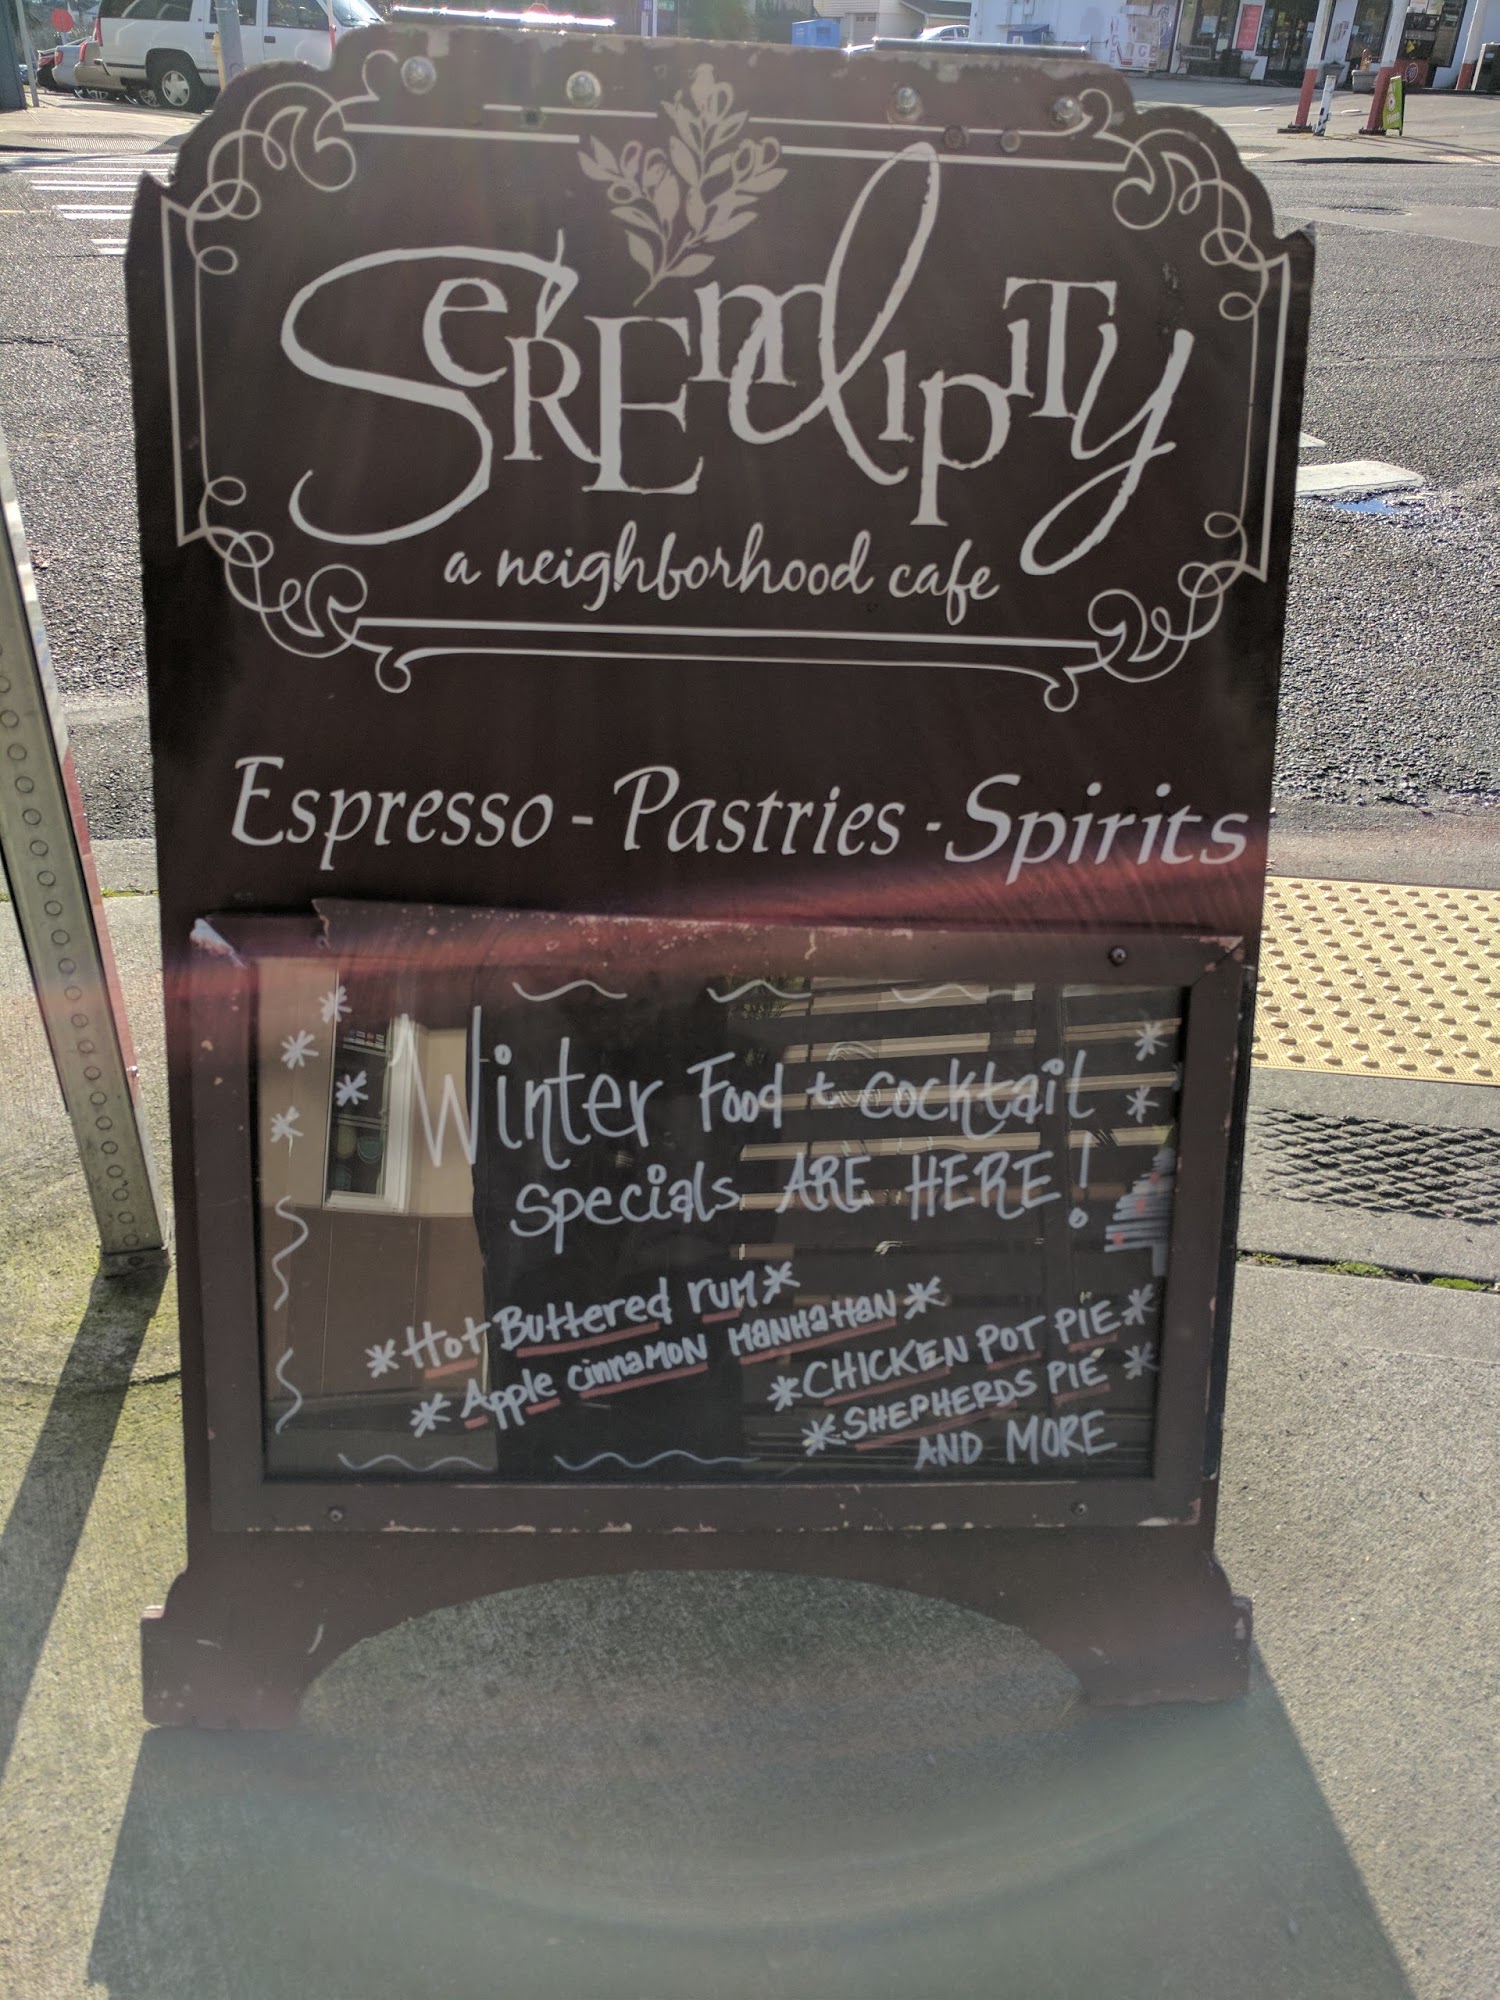 SeRENdIpiTy
a neighborhood cafe
Espresso - Pastries - Spirits
Winter Food + cocktail
specials ARE HERE!
*Hot Buttered rum*
*Apple cinnamon manhattan*
*CHICKEN POT PIE*
*SHEPHERDS PIE*
AND MORE